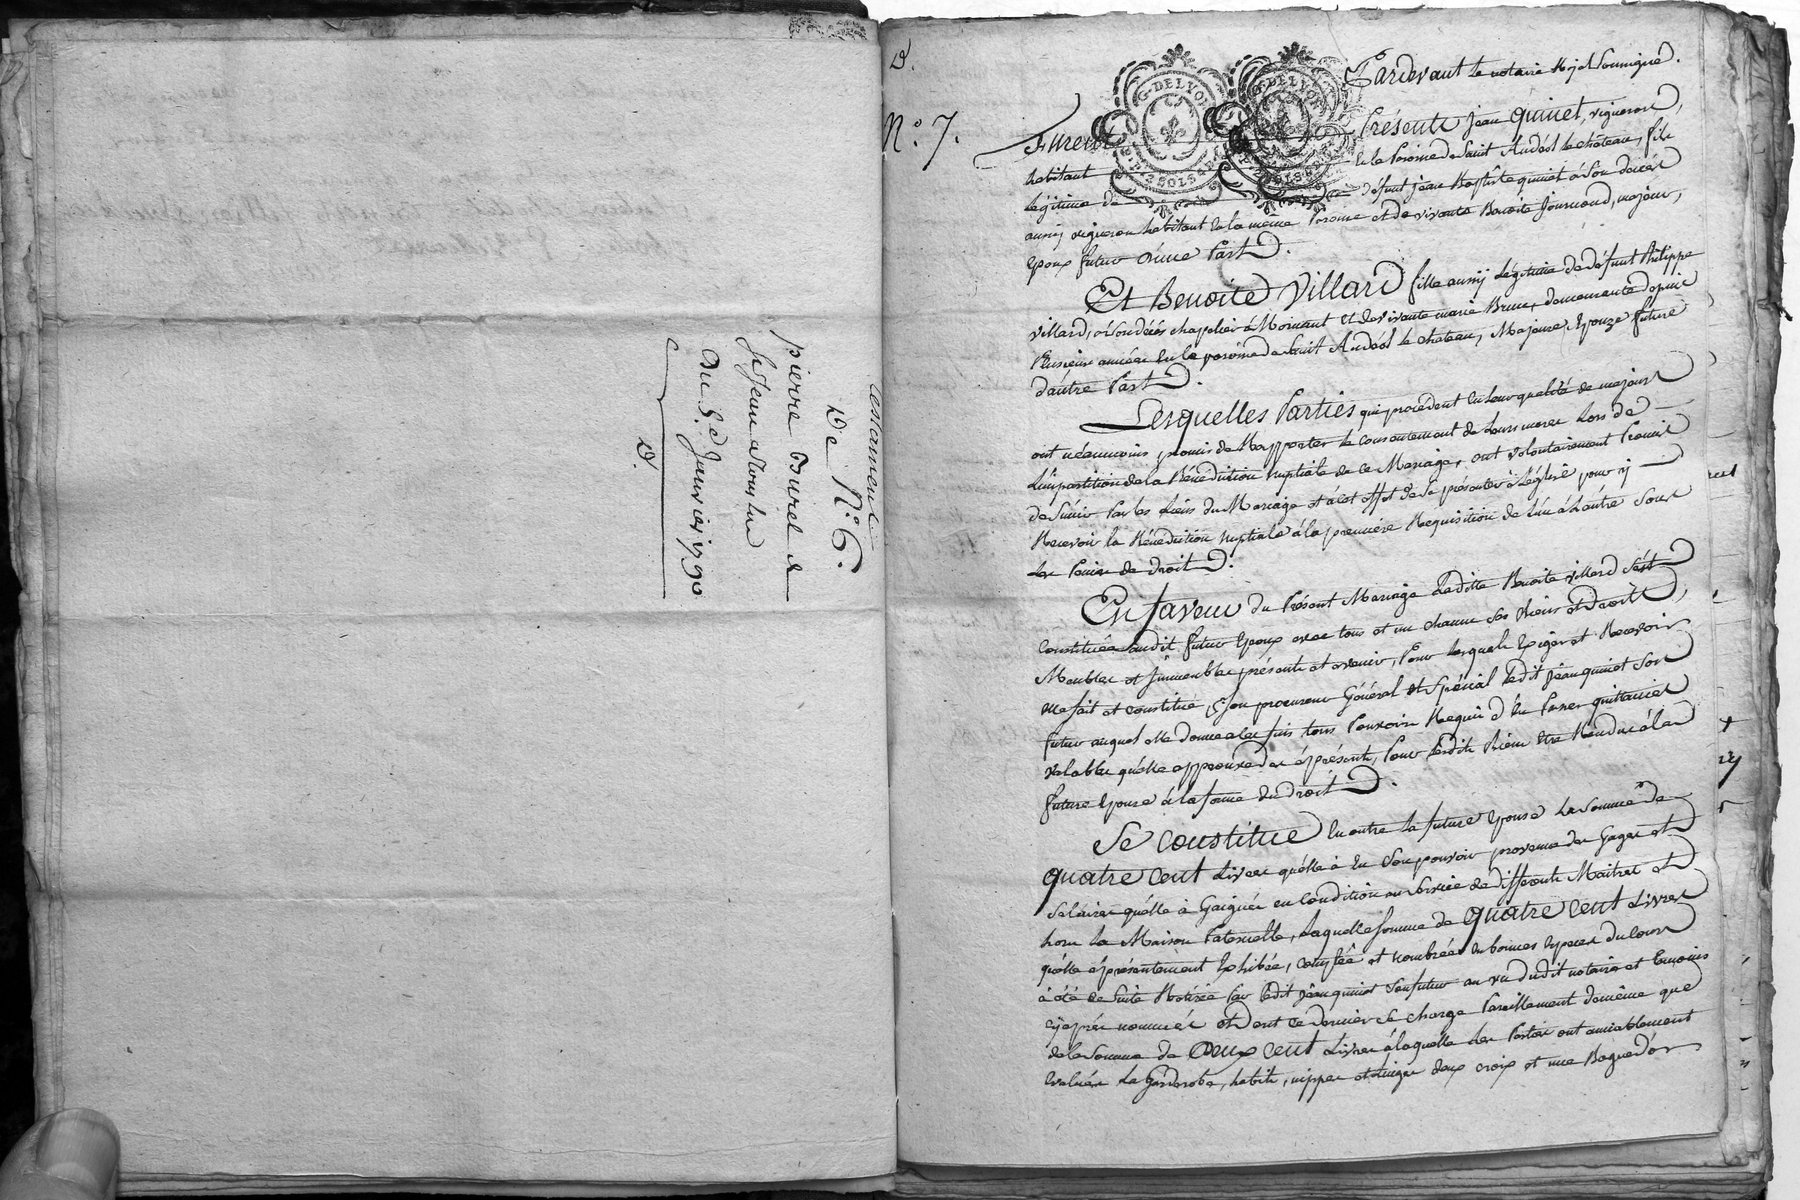 testament
De N.° 6.
pierre Burel a
Sr Jean
Du 5.e Janvier 1790
D.
D.
N.° 7.
G. DE LYON
2 SOLS
G. DE LYON
2 SOLS
Pardevant Le notaire Royal Soussigné.
Furent Présents Jean quinet, vigneron,
habitant de la Paroisse de Saint Andéol le château, fils
légitime de défunt jean Baptiste quiniet à son décès
aussy vigneron habitant de la même Paroisse et de vivante Benoite Journoud, majeur,
Epoux futur d'une Part.
Et Benoite Villard fille aussy Légitime de défunt Philippe
villard, à son décès chapelier à Mornant et de vivante marie Brun, demeurante depuis
Plusieurs années en la paroisse de Saint Andéol le chateau, Majeure Epouze future
d'autre Part.
Lesquelles Parties qui procédent en leur qualité de majeurs
ont néanmoins promis de Rapporter le consentement de Leurs meres Lors de
L'impartition de la Bénédiction nuptiale de ce Mariage, ont volontairement Promis
de S'unir Par les Liens du Mariage et à cet effet de Se présenter à L'église pour y
Recevoir la Bénédiction nuptiale à la premiére Requisition de L'un à L'autre Sous
Les Peines de droit.
En faveur du Présent Mariage Ladite Benoite villard S'est
Constituée audit futur Epoux avec tous et un chacun Ses Biens et droits,
Meubles et Immeubles présents et avenir, Pour Lesquels Exiger et Recevoir
elle fait et constitué Son procureur Général et Spécial Ledit Jean quiniet Son
futur auquel elle donne a ces fins tous Pouvoirs Requis d'En Passer quittances
valables qu'elle approuve dès àprésent, Pour Lesdits Biens Etre Rendus à la
future Epouse à la forme du droit.
Se constitue En outre la future Epouse La Somme de
quatre cent Livres qu'elle à En Son pouvoir provenue des Gages et
Salaires qu'elle à Gaignés en Condition au Service de différents Maitres et
hors la Maison Paternelle, Laquelle Somme de quatre cent Livres
qu'elle àprésentement Exhibée, comptée et nombrée En bonnes Espèces du cours
à été de Suite Retirée Par Ledit Jean quiniet Son futur au vu dudit notaire et témoins
cy après nommés et Dont ce dernier Se charge Pareillement de même que
de la Somme de Deux cent Livres à laquelle Les Parties ont amiablement
Evaluée La Garderobe, habits, nippes et Linges deux croix et une Bague d'or